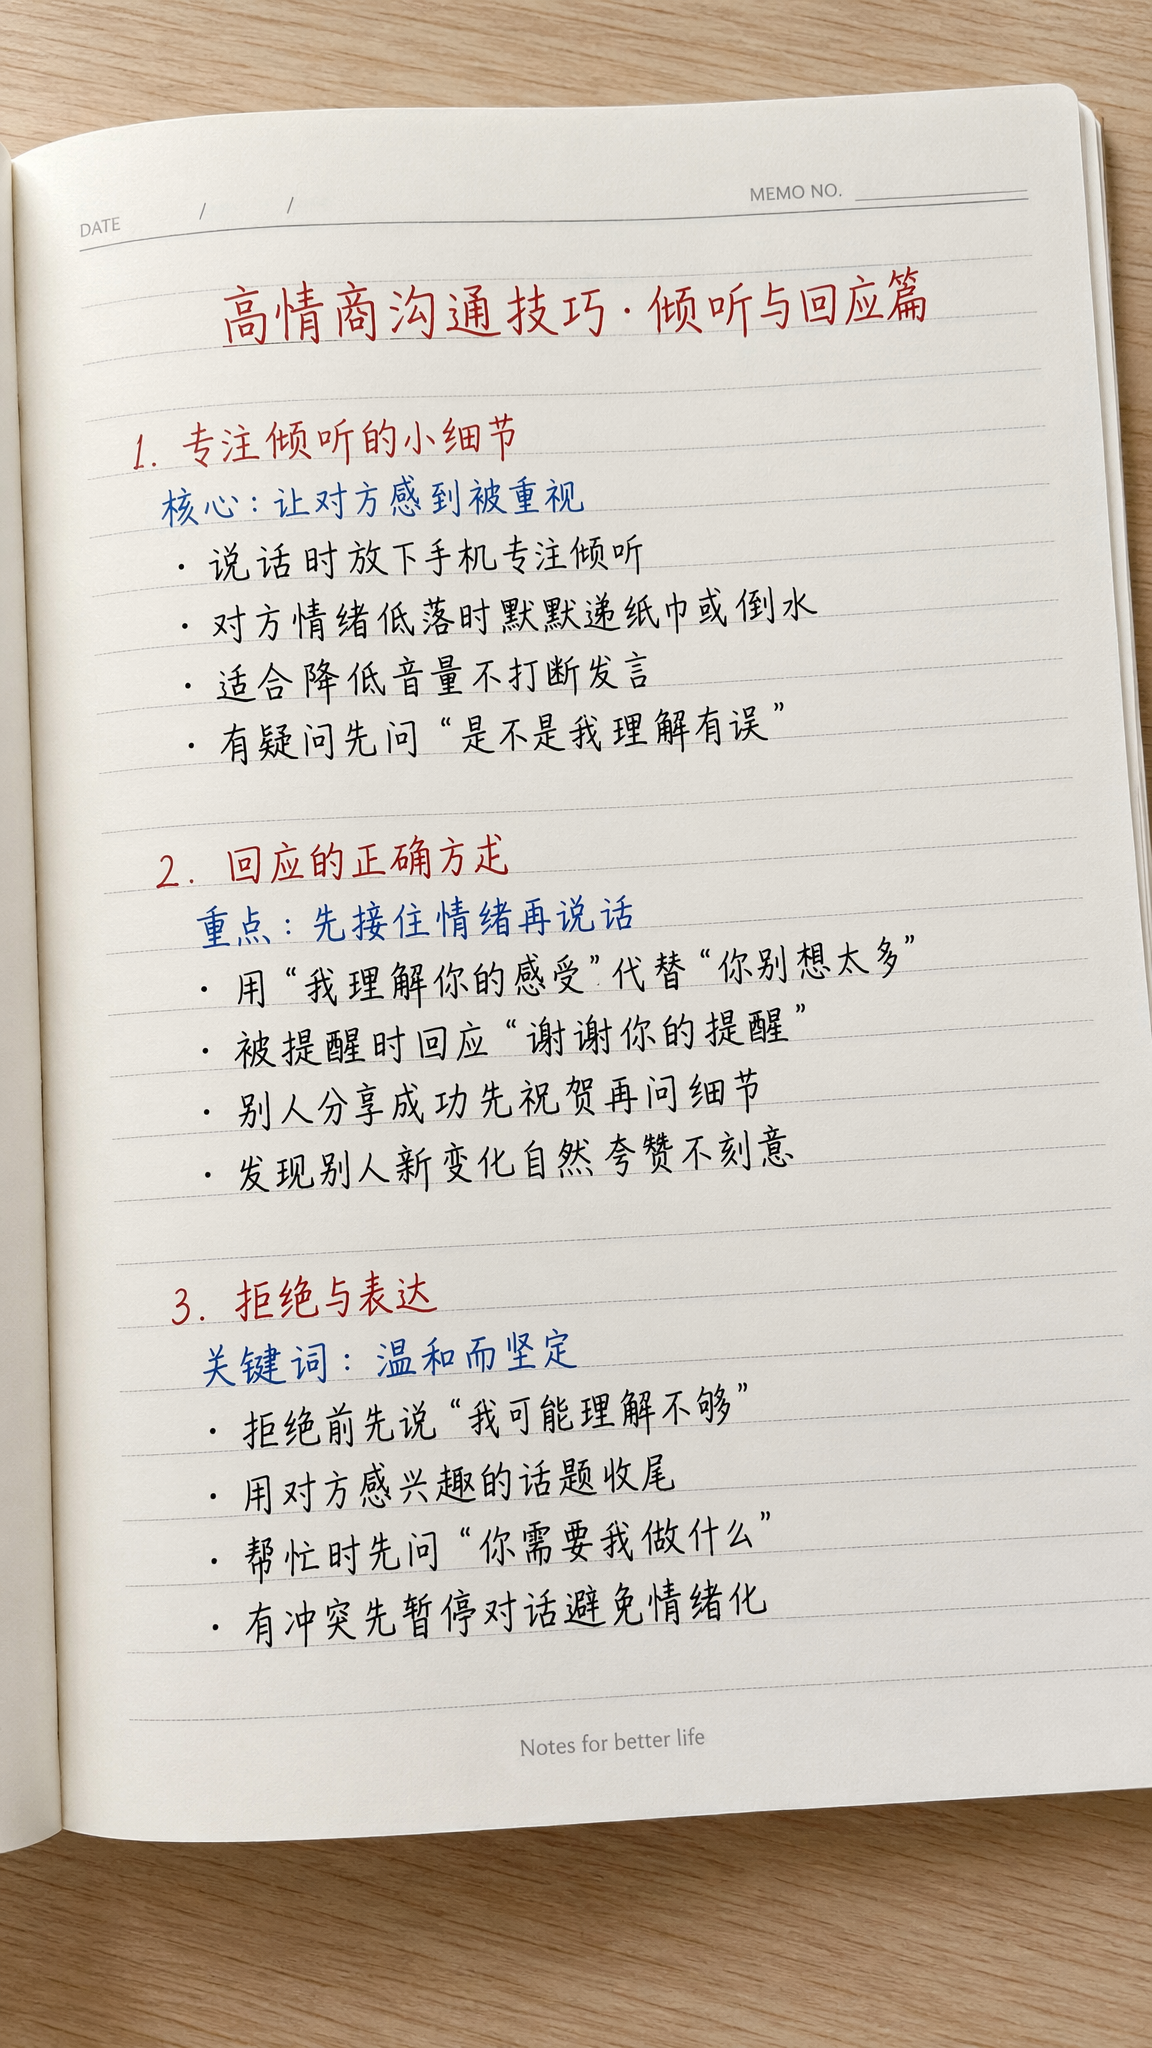 DATE / /
MEMO NO.
高情商沟通技巧·倾听与回应篇
1. 专注倾听的小细节
核心：让对方感到被重视
· 说话时放下手机专注倾听
· 对方情绪低落时默默递纸巾或倒水
· 适合降低音量不打断发言
· 有疑问先问“是不是我理解有误”
2. 回应的正确方式
重点：先接住情绪再说话
· 用“我理解你的感受”代替“你别想太多”
· 被提醒时回应“谢谢你的提醒”
· 别人分享成功先祝贺再问细节
· 发现别人新变化自然夸赞不刻意
3. 拒绝与表达
关键词：温和而坚定
· 拒绝前先说“我可能理解不够”
· 用对方感兴趣的话题收尾
· 帮忙时先问“你需要我做什么”
· 有冲突先暂停对话避免情绪化
Notes for better life